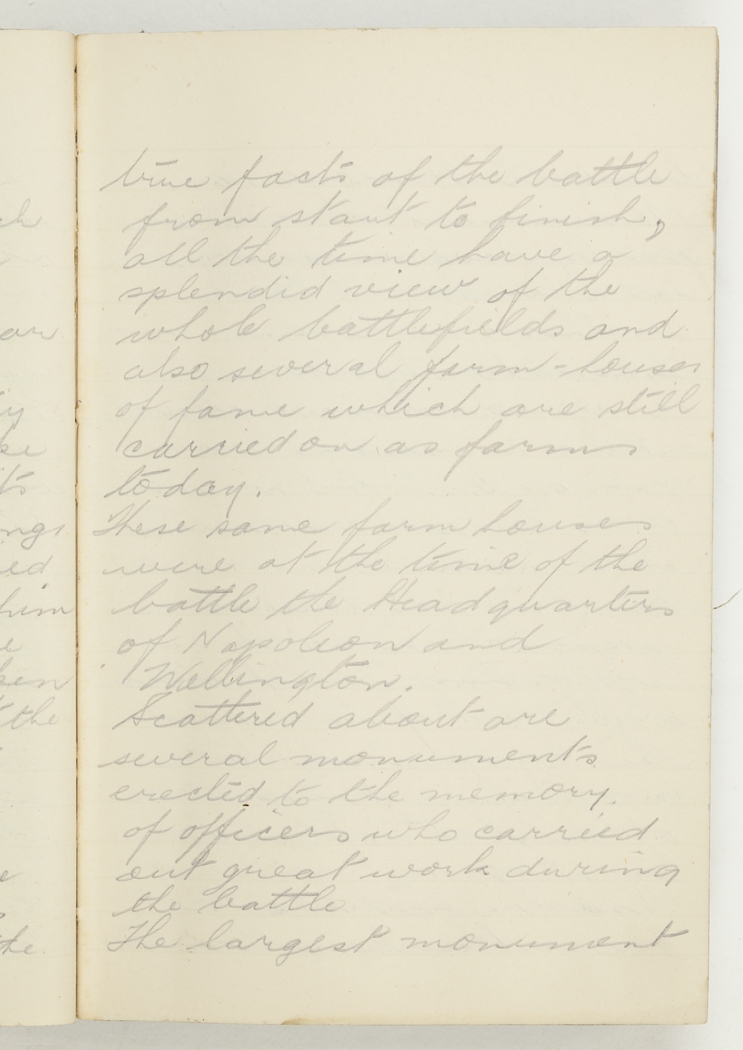 true facts of the battle
from start to finish,
all the time have a
splendid view of the
whole battlefields and
also several farm-houses
of fame which are still
carried on as farms
today.
These same farm houses
were at the time of the
battle the Headquarters
of Napoleon and
Wellington.
Scattered about are
several monuments
erected to the memory.
of officers who carried
out great work during
the battle
The largest monument